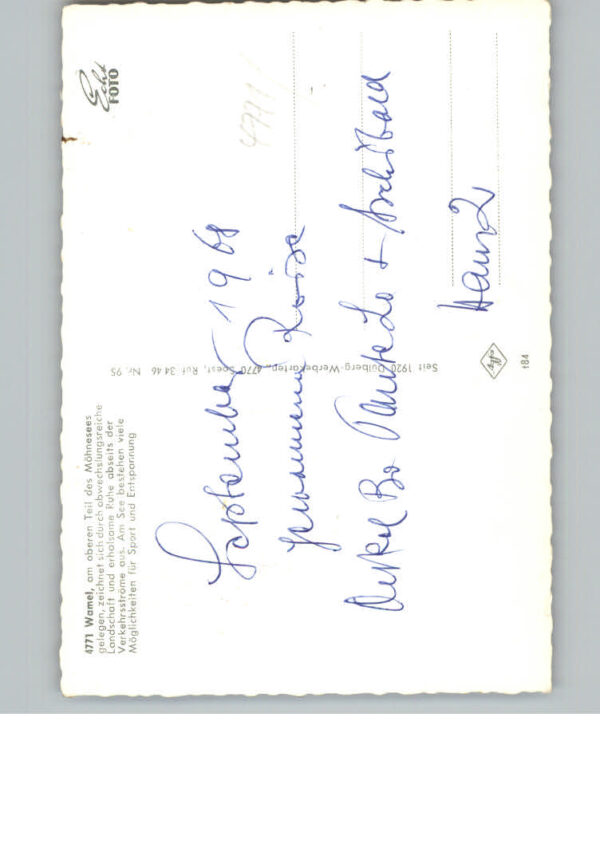 4771 Wamel, am oberen Teil des Möhnesees
gelegen, zeichnet sich durch abwechslungsreiche
Landschaft und erholsame Ruhe abseits der
Verkehrsströme aus. Am See bestehen viele
Möglichkeiten für Sport und Entspannung
Echt
FOTO
4771/
September 1968
gemeinsame Reise
Onkel Bo Tante Lo +
Heinz
Seit 1920 Dülberg-Werbekarten, 4770 Soest, Ruf 34 46 Nr. 95
Agfa
184